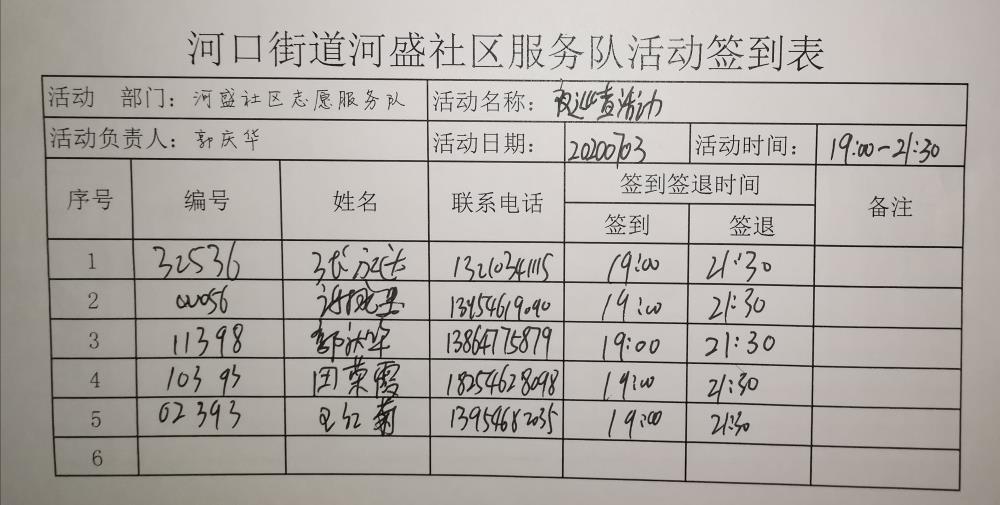 河口街道河盛社区服务队活动签到表
活动 部门：河盛社区志愿服务队 活动名称：夜巡查活动
活动负责人：郭庆华 活动日期：20200703 活动时间：19:00-21:30
序号 编号 姓名 联系电话 签到签退时间 备注
签到 签退
1 32536 13210341115 19:00 21:30
2 00056 13954619090 19:00 21:30
3 11398 郭庆华 13864775879 19:00 21:30
4 10393 田荣霞 18254628098 19:00 21:30
5 02393 王红菊 13954682035 19:00 21:30
6